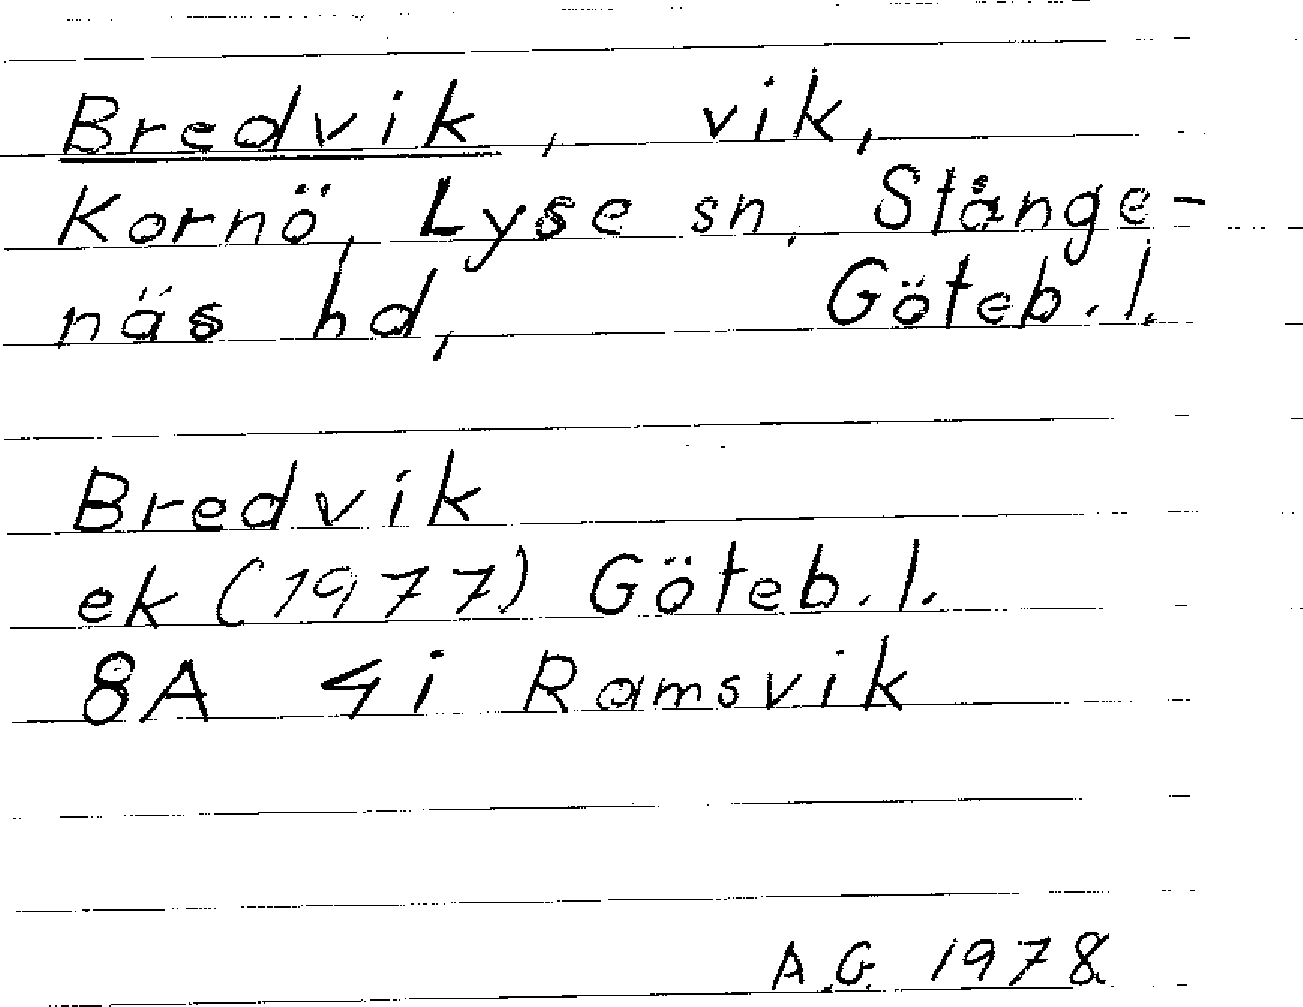 Bredvik, vik,
Kornö, Lyse sn, Stånge-
näs hd, Göteb. l.
Bredvik
ek (1977) Göteb. l.
8A 4i Ramsvik
A.G. 1978